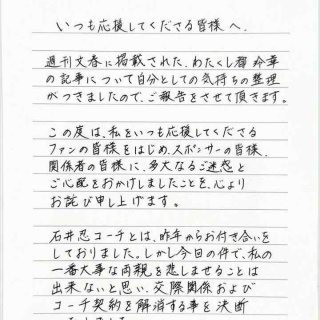 いつも応援してくださる皆様へ.
週刊文春に掲載された、わたくし穆 玲華
の記事について自分としての気持ちの整理
がつきましたので、ご報告をさせて頂きます。
この度は、私をいつも応援してくださる
ファンの皆様をはじめ、スポンサーの皆様、
関係者の皆様に、多大なるご迷惑と
ご心配をおかけしましたことを、心より
お詫び申し上げます。
石井忍コーチとは、昨年からお付き合いを
しておりました。しかし今回の件で、私の
一番大事な両親を悲しませることは
出来ないと思い、交際関係および
コーチ契約を解消する事を決断